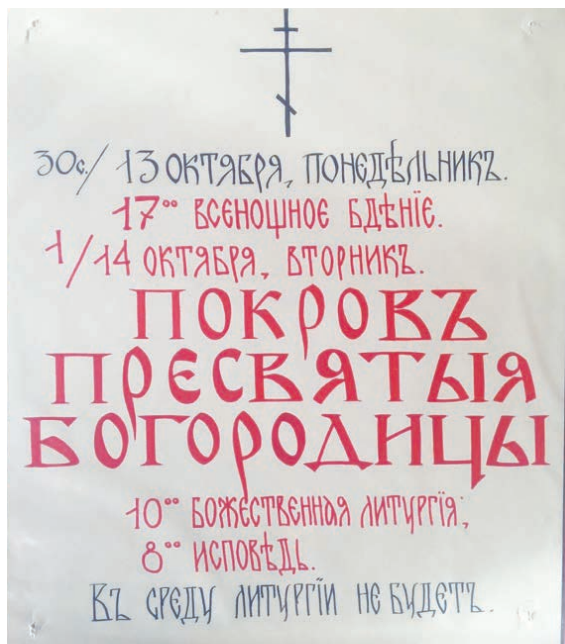 30с./ 13 ОКТЯБРЯ, ПОНЕДѢЛЬНИКЪ.
17⁰⁰ ВСЕНОЩНОЕ БДѢНІЕ.
1/14 ОКТЯБРЯ, ВТОРНИКЪ.
ПОКРОВЪ
ПРЕСВЯТЫЯ
БОГОРОДИЦЫ
10⁰⁰ БОЖЕСТВЕННАЯ ЛИТУРГІЯ;
8⁰⁰ ИСПОВѢДЬ.
ВЪ СРЕДУ ЛИТУРГІИ НЕ БУДЕТЪ.